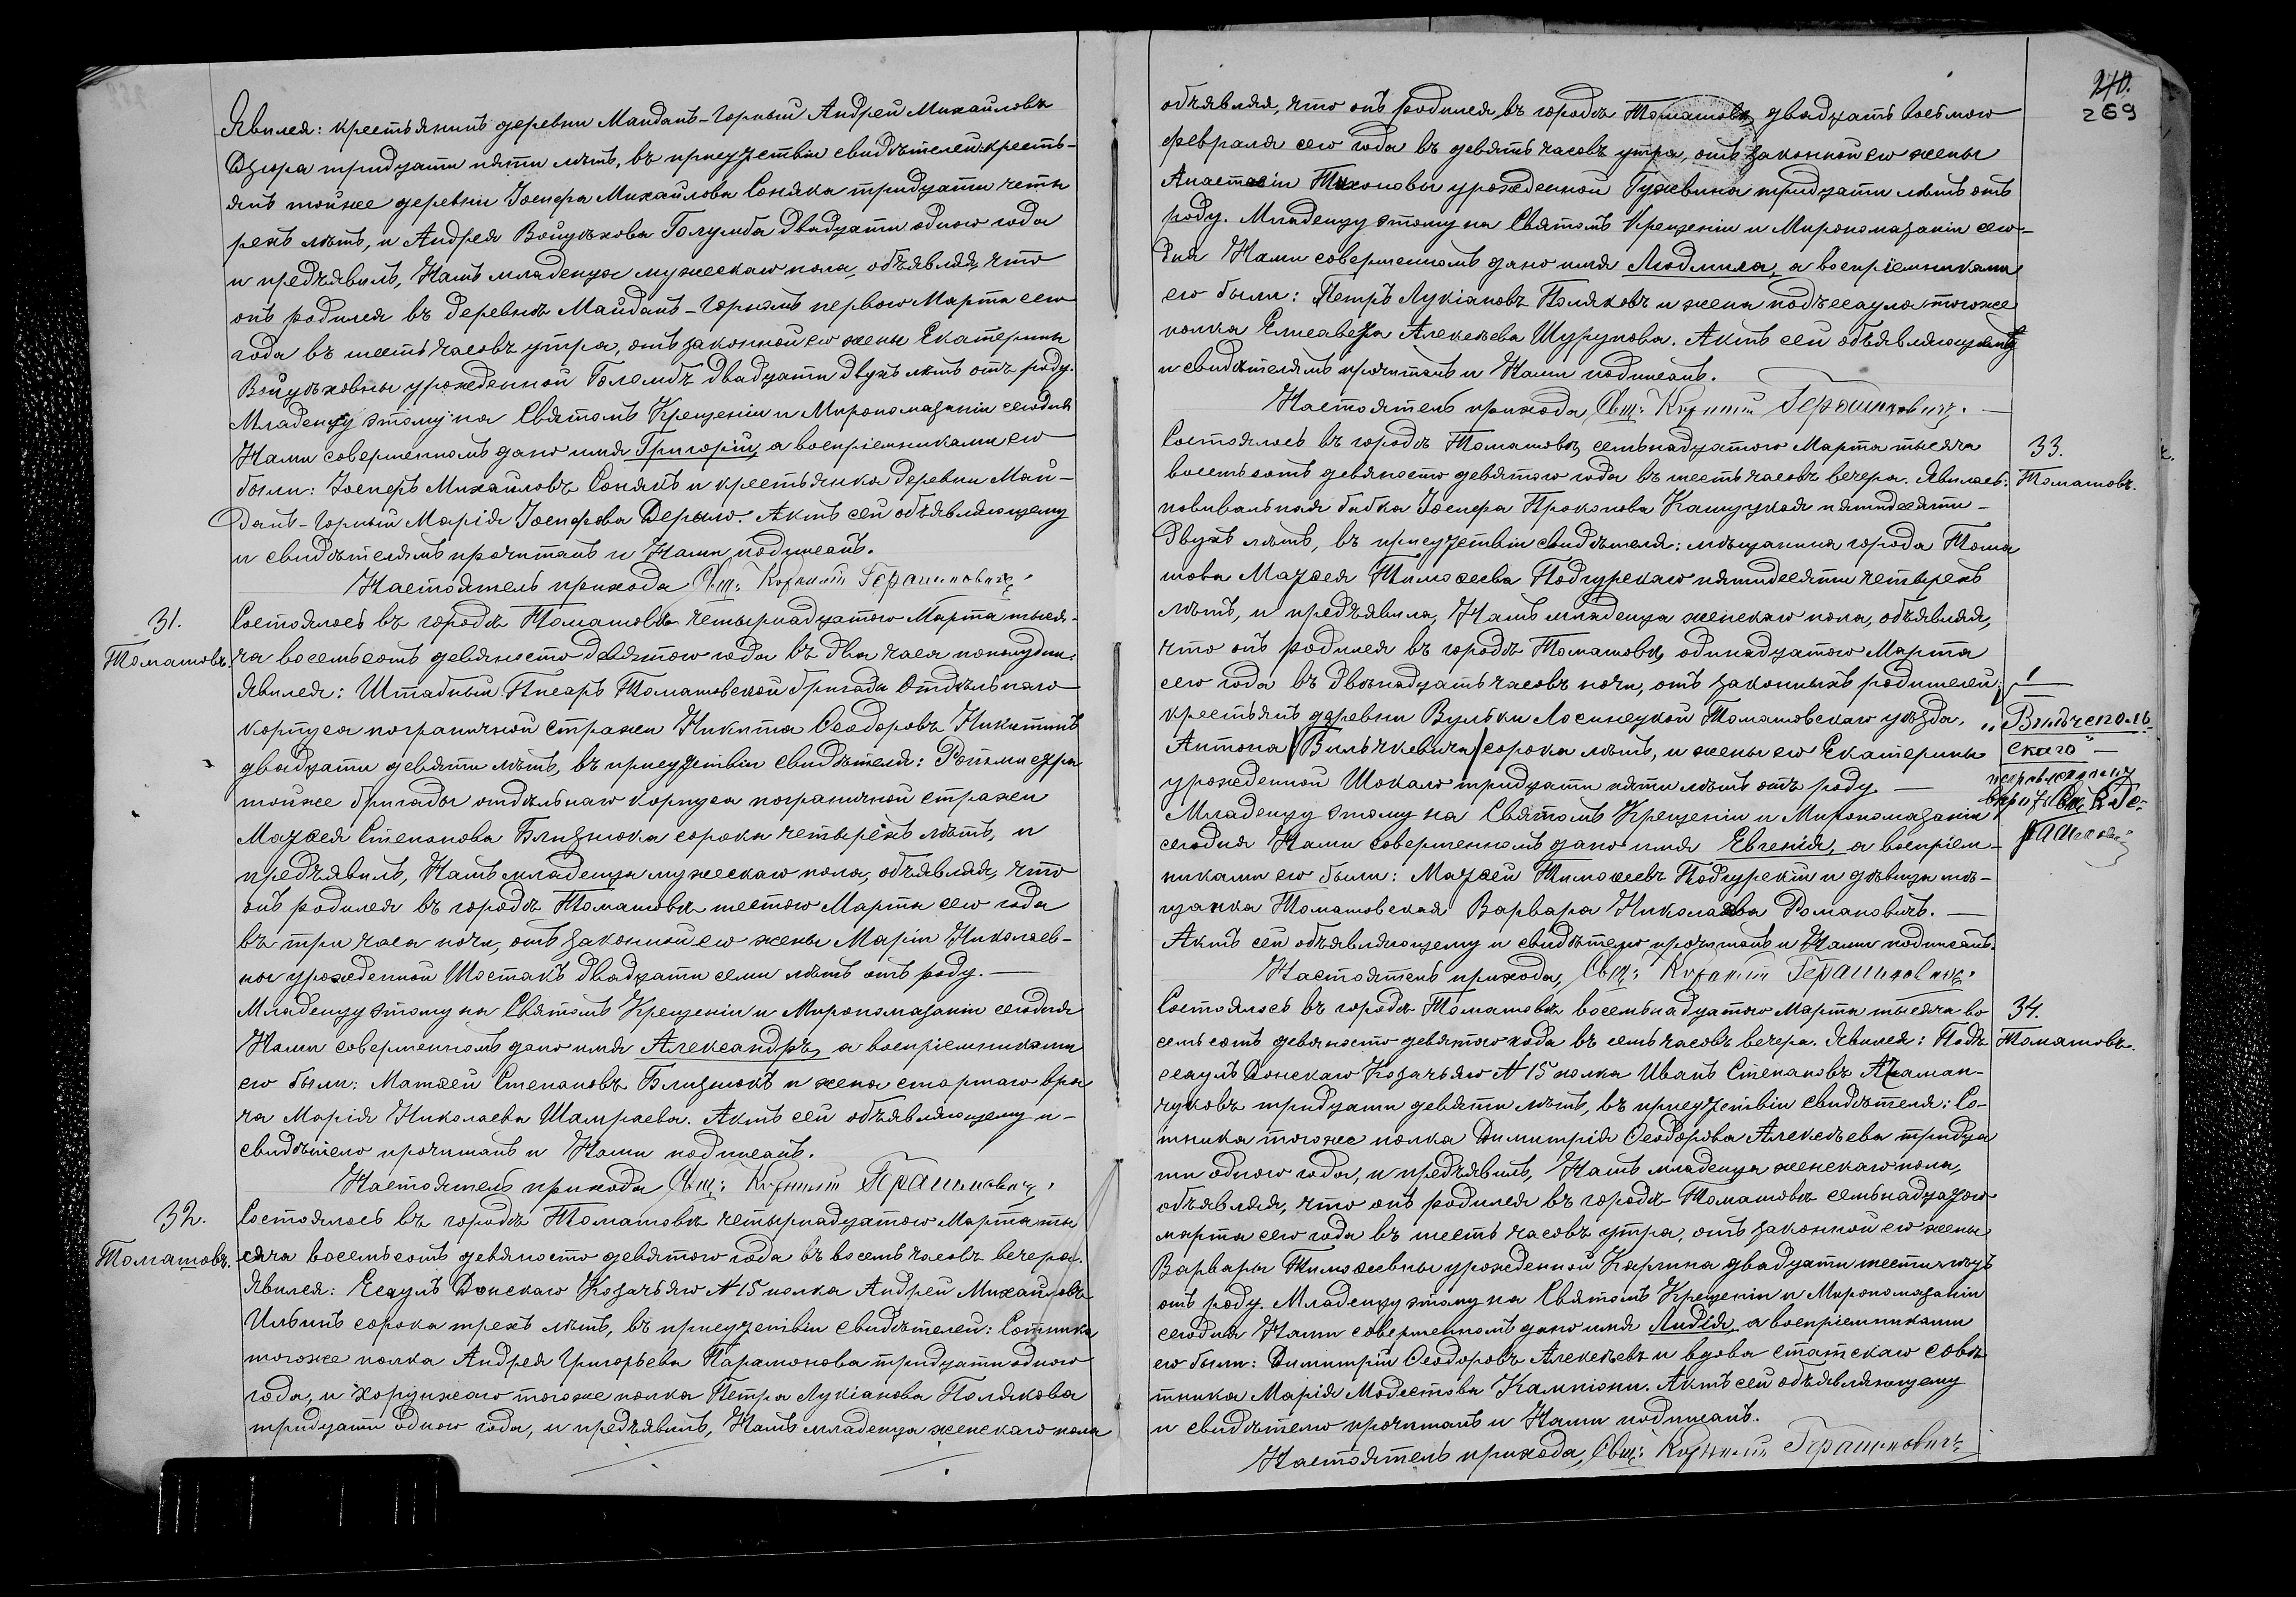 Явился: крестьянинъ деревни Майданъ-Горный Андрей Михайловъ
Дзюра тридцати пяти лѣтъ, въ присутствіи свидѣтелей кресть-
янъ тойже деревни Іосифа Михайлова Соняка тридцати четы
рехъ лѣтъ, и Андрея Войцѣхова Голумба двадцати одного года
и предъявилъ, Намъ младенца мужескаго пола, объявляя, что
онъ родился въ деревнѣ Майданъ-Горномъ перваго Марта сего
года въ шесть часовъ утра, отъ законной его жены Екатерины
Войцѣховны урожденной Голембъ двадцати двухъ лѣтъ отъ роду.
Младенцу этому на Святомъ Крещеніи и Мѵропомазаніи сегодня
Нами совершенномъ дано имя Григорій, а воспріемниками его
были: Іосифъ Михайловъ Сонякъ и крестьянка деревни Май-
данъ-Горный Марія Іосифова Дерыло. Актъ сей объявляющему
и свидѣтелямъ прочитанъ и Нами подписанъ.
Настоятель прихода Свщ: Корнилій Герашиновичъ.
31.
Томашовъ.
Состоялось въ городѣ Томашовѣ четырнадцатаго Марта тыся-
ча восемьсотъ девяносто девятаго года въ два часа пополудни.
Явился: Штабный Писарь Томашовской бригады Отдѣльнаго
корпуса пограничной стражи Никита Ѳеодоровъ Никитинъ
двадцати девяти лѣтъ, въ присутствіи свидѣтеля: Ротмистра
тойже бригады отдѣльнаго корпуса пограничной стражи
Матѳея Степанова Близнюка сорока четырехъ лѣтъ, и
предъявилъ, Намъ младенца мужескаго пола, объявляя, что
онъ родился въ городѣ Томашовѣ шестого Марта сего года
въ три часа ночи, отъ законной его жены Маріи Николаев-
ны урожденной Шостакъ двадцати семи лѣтъ отъ роду. —
Младенцу этому на Святомъ Крещеніи и Мѵропомазаніи сегодня
Нами совершенномъ дано имя Александръ, а воспріемниками
его были: Матѳей Степановъ Близнюкъ и жена старшаго вра
ча Марія Николаева Шамраева. Актъ сей объявляющему и-
свидѣтелю прочитанъ и Нами подписанъ.
Настоятель прихода Свщ: Корнилій Герашиновичъ.
32.
Томашовъ.
Состоялось въ городѣ Томашовѣ четырнадцатаго Марта ты
сяча восемьсотъ девяносто девятаго года въ восемь часовъ вечера.
Явился: Есаулъ Донскаго Козачьяго № 15 полка Андрей Михайловъ
Ильинъ сорока трехъ лѣтъ, въ присутствіи свидѣтелей: Сотника
тогоже полка Андрея Григорьева Парамонова тридцати одного
года, и Хорунжаго тогоже полка Петра Лукіанова Полякова
тридцати одного года, и предъявилъ, Намъ младенца женскаго пола
240.
269
объявляя, что онъ родился въ городѣ Томашовѣ двадцать восьмого
февраля сего года въ девять часовъ утра, отъ законной его жены
Анастасіи Тихоновы урожденной Гужвина тридцати лѣтъ отъ
роду. Младенцу этому на Святомъ Крещеніи и Мѵропомазаніи сего-
дня Нами совершенномъ дано имя Людмила, а воспріемниками
его были: Петръ Лукіановъ Поляковъ и жена подъесаула тогоже
полка Елисавета Алексѣева Шурупова. Актъ сей объявляющему
и свидѣтелямъ прочитанъ и Нами подписанъ.
Настоятель прихода Свщ: Корнилій Герашиновичъ. —
33.
Томашовъ.
Состоялось въ городѣ Томашовѣ, семьнадцатаго Марта тысяча
восемьсотъ девяносто девятаго года въ шесть часовъ вечера. Явилась:
повивальная бабка Іосифа Прокопова Кашуцкая пятидесяти-
двухъ лѣтъ, въ присутствіи свидѣтеля: мѣщанина города Тома
шова Матѳея Тимоѳеева Подгурскаго пятидесяти четырехъ
лѣтъ, и предъявила, Намъ младенца женскаго пола, объявляя,
что онъ родился въ городѣ Томашовѣ, одинадцатаго Марта
сего года въ двѣнадцать часовъ ночи, отъ законныхъ родителей:
крестьянъ деревни Вульки Лосинецкой Томашовскаго уѣзда,
Антона Вильчкевича сорока лѣтъ, и жены его Екатерины
урожденной Шокало тридцати пяти лѣтъ отъ роду —
Младенцу этому на Святомъ Крещеніи и Мѵропомазаніи
сегодня Нами совершенномъ дано имя Евгенія, а воспріем-
никами его были: Матѳей Тимоѳеевъ Подгурскій и дѣвица мѣ-
щанка Томашовская Варвара Николаева Романовичъ. —
Актъ сей объявляющему и свидѣтелю прочитанъ и Нами подписанъ.
Настоятель прихода, Свщ: Корнилій Герашиновичъ.
34.
Томашовъ.
Состоялось въ городѣ Томашовѣ восемьнадцатаго Марта тысяча во
семьсотъ девяносто девятаго года въ семь часовъ вечера. Явился: Подъ
есаулъ Донскаго Козачьяго № 15 полка Иванъ Степановъ Атаман-
чуковъ тридцати девяти лѣтъ, въ присутствіи свидѣтеля: Со-
тника тогоже полка Димитрія Ѳеодорова Алексѣева тридца
ти одного года, и предъявилъ, Намъ младенца женскаго пола,
объявляя, что онъ родился въ городѣ Томашовѣ семьнадцатаго
марта сего года въ шесть часовъ утра, отъ законной его жены
Варвары Тимоѳеевны урожденной Каргина двадцати шести лѣтъ
отъ роду. Младенцу этому на Святомъ Крещеніи и Мѵропомазаніи
сегодня Нами совершенномъ дано имя Лидія, а воспріемниками
его были: Димитрій Ѳеодоровъ Алексѣевъ и вдова статскаго совѣ
тника Марія Модестова Кампіони. Актъ сей объявляющему
и свидѣтелю прочитанъ и Нами подписанъ.
Настоятель прихода, Свщ: Корнилій Герашиновичъ